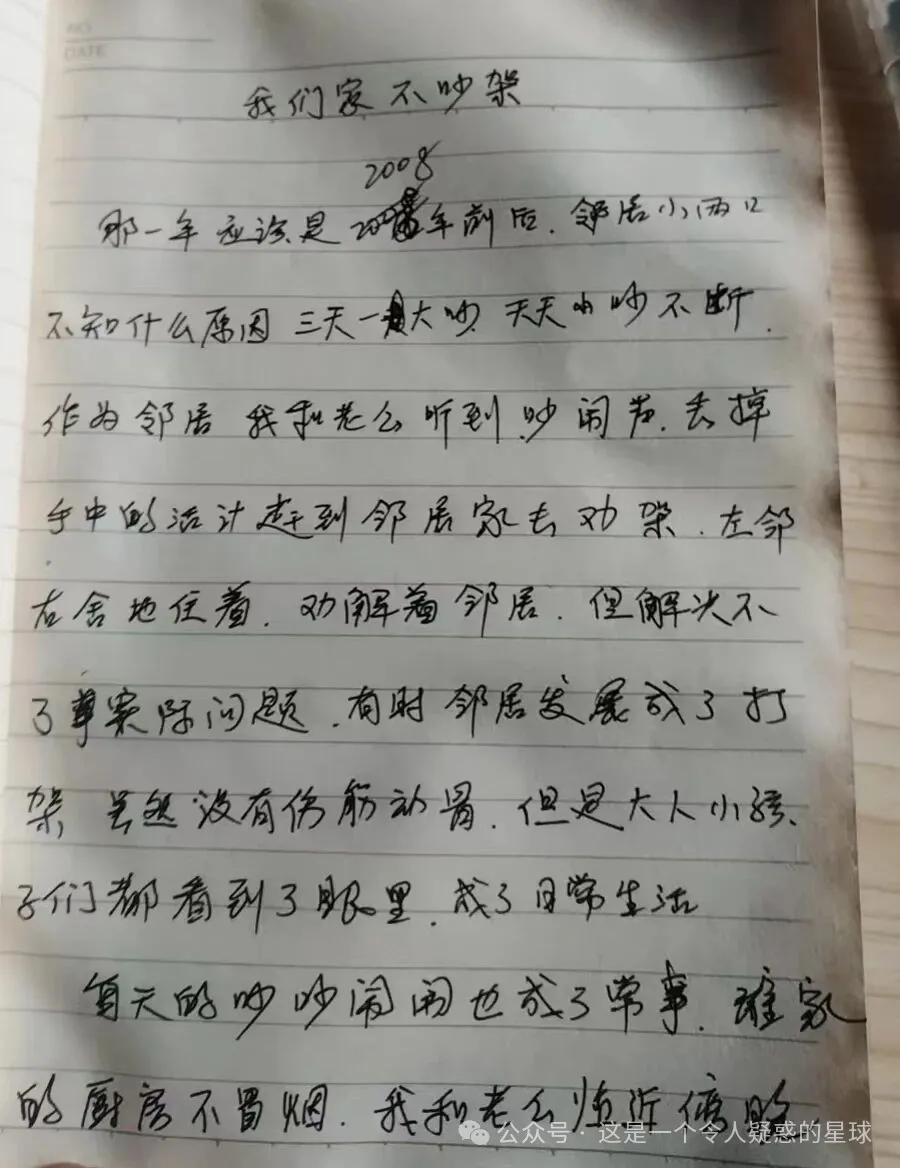 NO
DATE
我们家不吵架
2008
那一年应该是年前后.邻居小两口
不知什么原因 三天一大吵.天天小吵不断.
作为邻居 我和老公听到吵闹声.丢掉
手中的活计赶到邻居家去劝架.左邻
右舍地住着.劝解着邻居.但解决不
了实际问题.有时邻居发展成了打
架 虽然没有伤筋动骨.但是大人小孩
子们都看到了眼里.成了日常生活
每天的吵吵闹闹也成了常事.谁家
的厨房不冒烟.我和老公临近傍晚
公众号·这是一个令人疑惑的星球